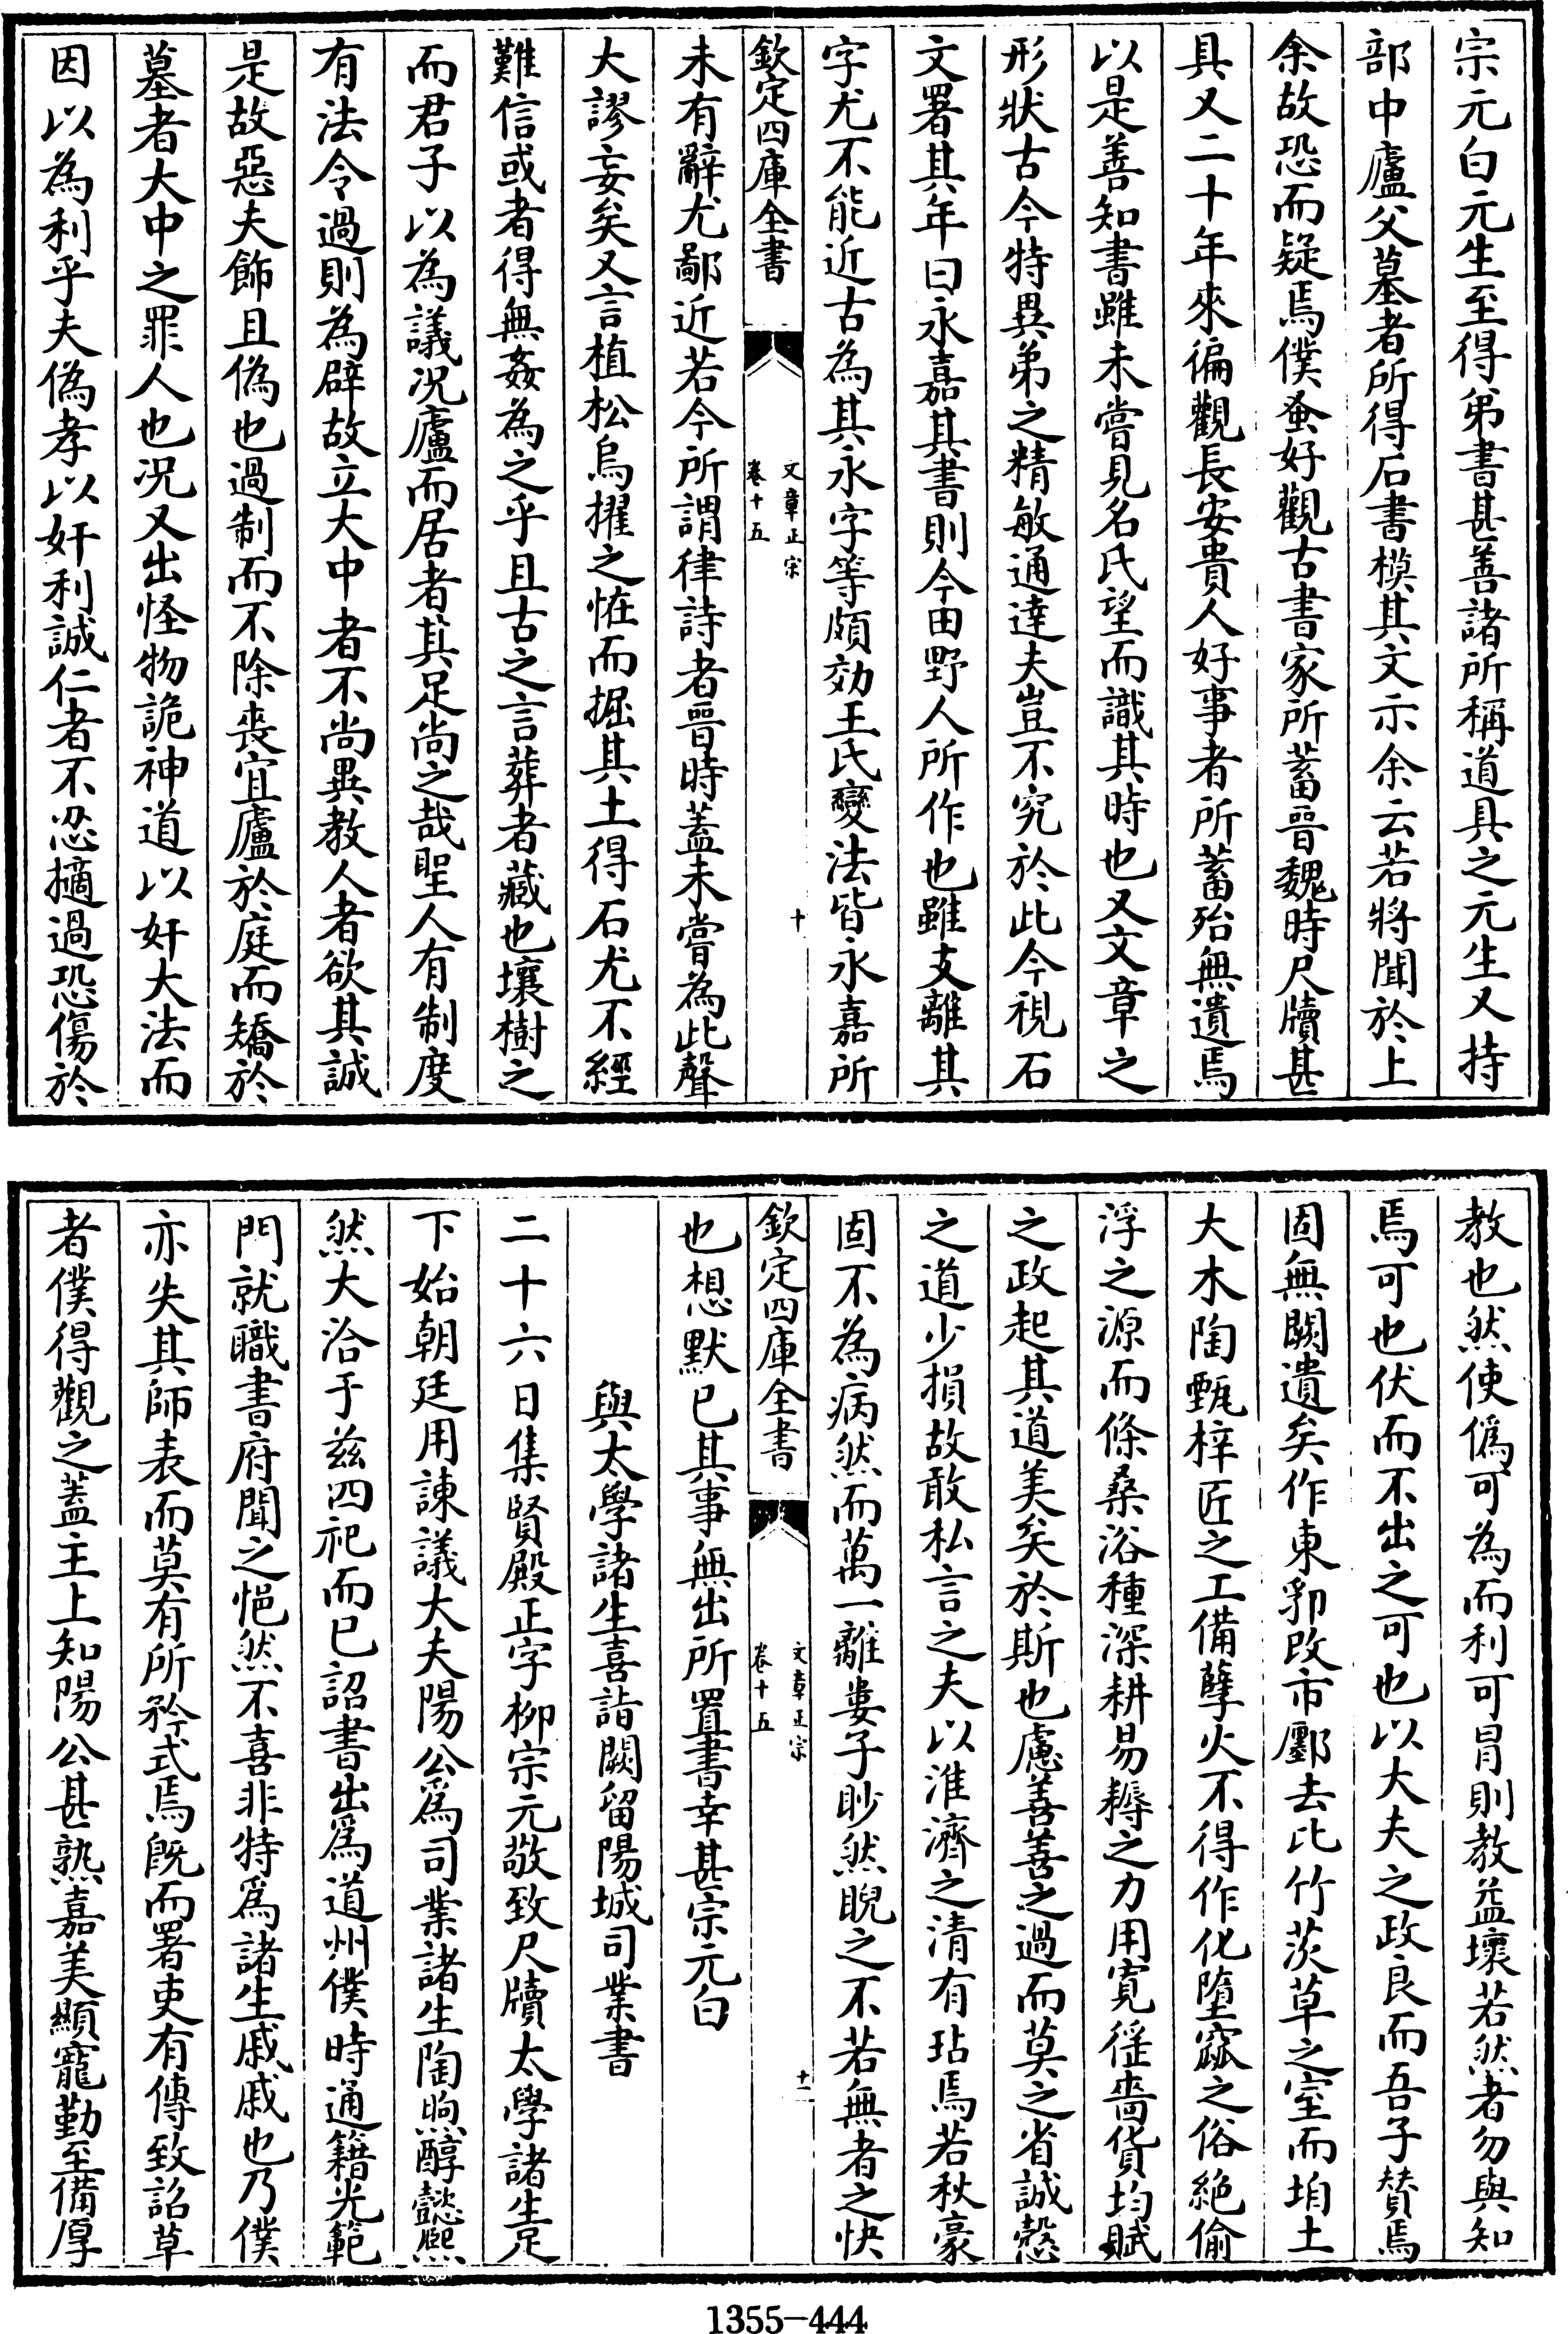 宗元白元生至得弟書甚善諸所稱道具之元生又持
部中廬父墓者所得石書模其文示余云若將聞於上
余故恐而疑焉僕蚤好觀古書家所蓄晉魏時尺牘甚
具又二十年來徧觀長安貴人好事者所蓄殆無遺焉
以是善知書雖未嘗見名氏望而識其時也又文章之
形狀古今特異弟之精敏通達夫豈不究於此今視石
文署其年曰永嘉其書則今田野人所作也雖支離其
字尤不能近古為其永字等頗効王氏變法皆永嘉所
欽定四庫全書
文章正宗
卷十五
十
未有辭尤鄙近若今所謂律詩者晉時蓋未嘗為此聲
大謬妄矣又言植松烏擢之恠而掘其土得石尤不經
難信或者得無姦為之乎且古之言葬者藏也壤樹之
而君子以為議况廬而居者其足尚之哉聖人有制度
有法令過則為辟故立大中者不尚異教人者欲其誠
是故惡夫飾且偽也過制而不除喪宜廬於庭而矯於
墓者大中之罪人也况又出怪物詭神道以奸大法而
因以為利乎夫偽孝以奸利誠仁者不忍擿過恐傷於
教也然使偽可為而利可冒則教益壞若然者勿與知
焉可也伏而不出之可也以大夫之政良而吾子贊焉
固無闕遺矣作東郛改市鄽去比竹茨草之室而垍土
大木陶甄梓匠之工備孽火不得作化墮窳之俗絶偷
浮之源而條桑浴種深耕易耨之力用寛徭嗇貨均賦
之政起其道美矣於斯也慮善善之過而莫之省誠慤
之道少損故敢私言之夫以淮濟之清有玷焉若秋豪
固不為病然而萬一離婁子眇然睨之不若無者之快
欽定四庫全書
文章正宗
卷十五
十一
也想默已其事無出所置書幸甚宗元白
與太學諸生喜詣闕留陽城司業書
二十六日集賢殿正字柳宗元敬致尺牘太學諸生足
下始朝廷用諫議大夫陽公爲司業諸生陶煦醇懿熙
然大洽于兹四祀而已詔書出爲道州僕時通籍光範
門就職書府聞之悒然不喜非特爲諸生戚戚也乃僕
亦失其師表而莫有所矜式焉旣而署吏有傳致詔草
者僕得觀之蓋主上知陽公甚熟嘉美顯寵勤至備厚
1355-444